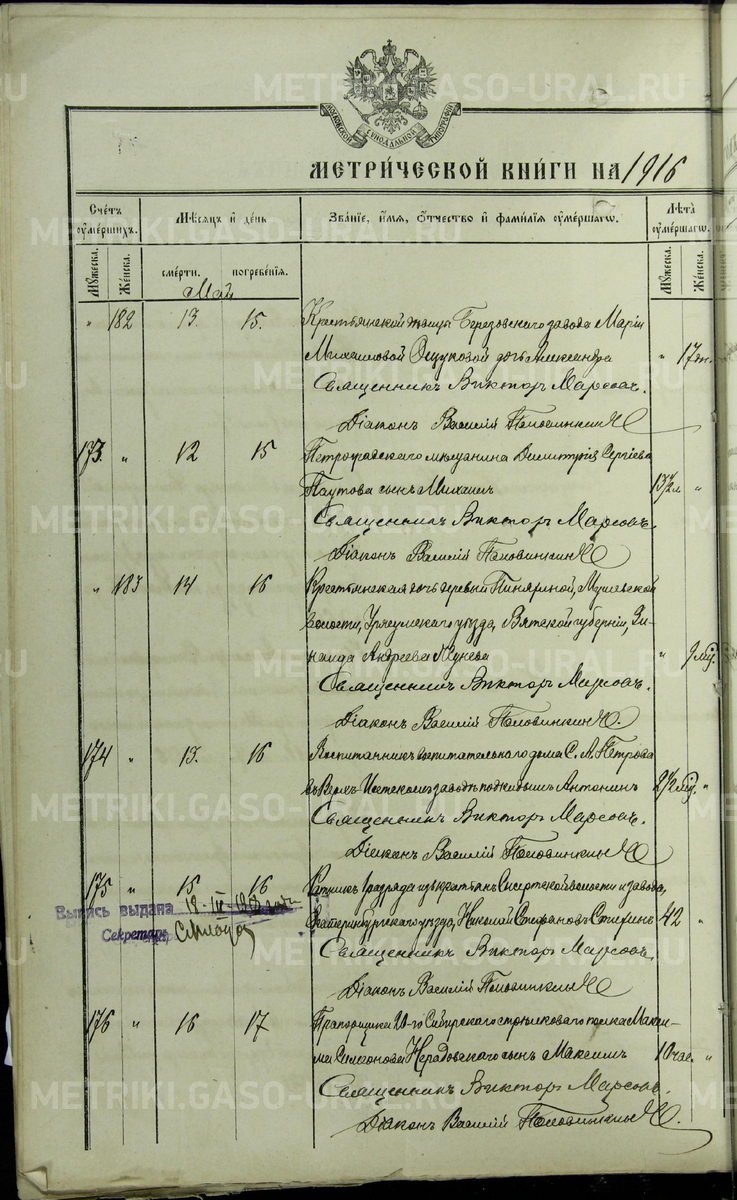 МОСКОВСКОЙ СѴНОДАЛЬНОЙ ТИПОГРАФІИ
МЕТРИ́ЧЕСКОЙ КНИ́ГИ НА 1916
Сче́тъ ᲂумершихъ.
Мѣ́сяцъ и҆ де́нь
Зва́нїе, и҆́мѧ, ѻ҆́тчество и҆ фами́лїѧ ᲂу҆ме́ршагѡ.
Лѣ́та ᲂу҆ме́ршагѡ
Мꙋжеска.
Же́нска.
сме́рти.
погребе́нїѧ.
Мꙋжеска.
Же́нска.
Май
" 182 13. 15. Крестьянской Березовскаго завода Маріи
Михаиловой дочь Александра " 17
Священникъ Викторъ Марсовъ.
Діаконъ Василій Половинкинъ
173. " 12 15 Петроградскаго мѣщанина Димитрія Сергіева
Паутова сынъ Михаилъ "
Священникъ Викторъ Марсовъ.
Діаконъ Василій Половинкинъ
" 183 14 16 Крестьянская дочь деревни
волости, Уржумскаго уѣзда, Вятской губерніи, Зи-
наида Андреева " 9 мѣс.
Священникъ Викторъ Марсовъ.
Діаконъ Василій Половинкинъ.
174 " 13. 16 Воспитанникъ воспитательнаго дома С. А. Петрова
въ Верхъ-Исетскомъ заводѣ подкидышъ Антонинъ 2 1/2 мѣс. "
Священникъ Викторъ Марсовъ.
Діаконъ Василій Половинкинъ
175 " 15 16 Ратникъ 1 разряда изъ крестьянъ Сысертской волости и завода,
Выпись выдана
Екатеринбургскаго уѣзда, Николай Стефановъ 42 "
Секретарь
Священникъ Викторъ Марсовъ.
Діаконъ Василій Половинкинъ
176 " 16 17 Прапорщика Сибирскаго стрѣлковаго полка Макси-
ма Симеонова Нерадовскаго сынъ Максимъ 10 час. "
Священникъ Викторъ Марсовъ.
Діаконъ Василій Половинкинъ.
METRIKI.GASO-URAL.RU